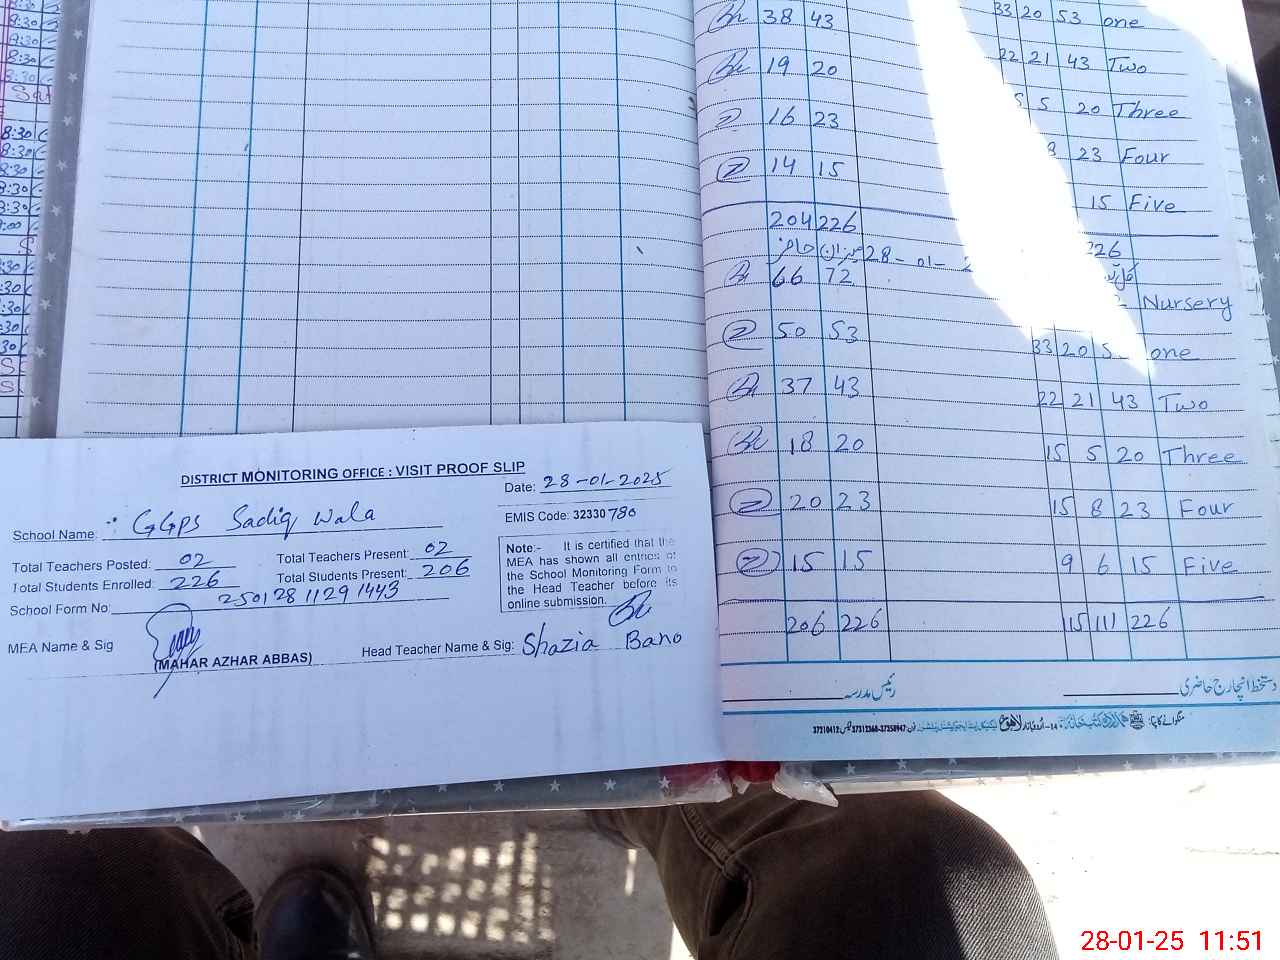 38 43 33 20 53 one
19 20 22 21 43 Two
16 23 5 20 Three
14 15 23 Four
15 Five
204 226
میزان حاضر 28-01- 226
66 72 Nursery
50 53 33 20 one
37 43 22 21 43 Two
18 20 15 5 20 Three
20 23 15 8 23 Four
15 15 9 6 15 Five
206 226 15 111 226
رئیس مدرسہ دستخط انچارج حاضری
37210412 37312360-37350947
DISTRICT MONITORING OFFICE : VISIT PROOF SLIP
Date: 28-01-2025
School Name: GGPS Sadiq Wala
EMIS Code: 32330780
Total Teachers Posted: 02 Total Teachers Present: 02
Total Students Enrolled: 226 Total Students Present: 206
School Form No: 25012811291443
Note:- It is certified that the
MEA has shown all entries of
the School Monitoring Form to
the Head Teacher before its
online submission.
MEA Name & Sig
(MAHAR AZHAR ABBAS)
Head Teacher Name & Sig: Shazia Bano
28-01-25 11:51